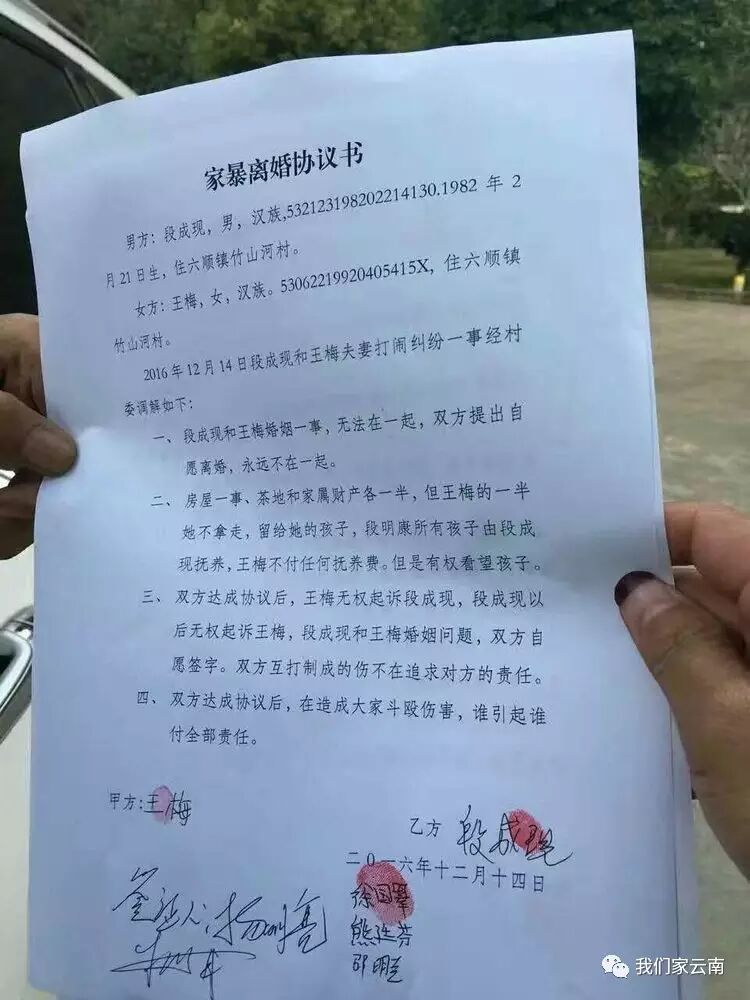 家暴离婚协议书
男方：段成现，男，汉族,532123198202214130.1982年2
月21日生，住六顺镇竹山河村。
女方：王梅，女，汉族。53062219920405415X，住六顺镇
竹山河村。
2016年12月14日段成现和王梅夫妻打闹纠纷一事经村
委调解如下：
一、段成现和王梅婚姻一事，无法在一起，双方提出自
愿离婚，永远不在一起。
二、房屋一事、茶地和家属财产各一半，但王梅的一半
她不拿走，留给她的孩子，段明康所有孩子由段成
现抚养，王梅不付任何抚养费。但是有权看望孩子。
三、双方达成协议后，王梅无权起诉段成现，段成现以
后无权起诉王梅，段成现和王梅婚姻问题，双方自
愿签字。双方互打制成的伤不在追求对方的责任。
四、双方达成协议后，在造成大家斗殴伤害，谁引起谁
付全部责任。
甲方：王梅
乙方 段成现
二〇一六年十二月十四日
我们家云南